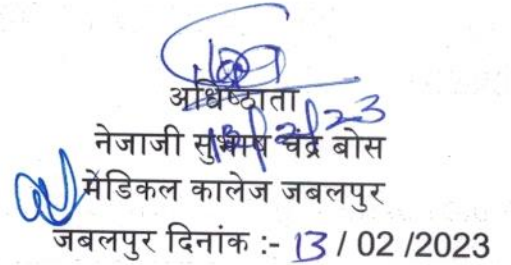 अधिष्ठाता
13/2/23
नेजाजी सुभाष चंद्र बोस
मेडिकल कालेज जबलपुर
जबलपुर दिनांक :- 13 / 02 /2023